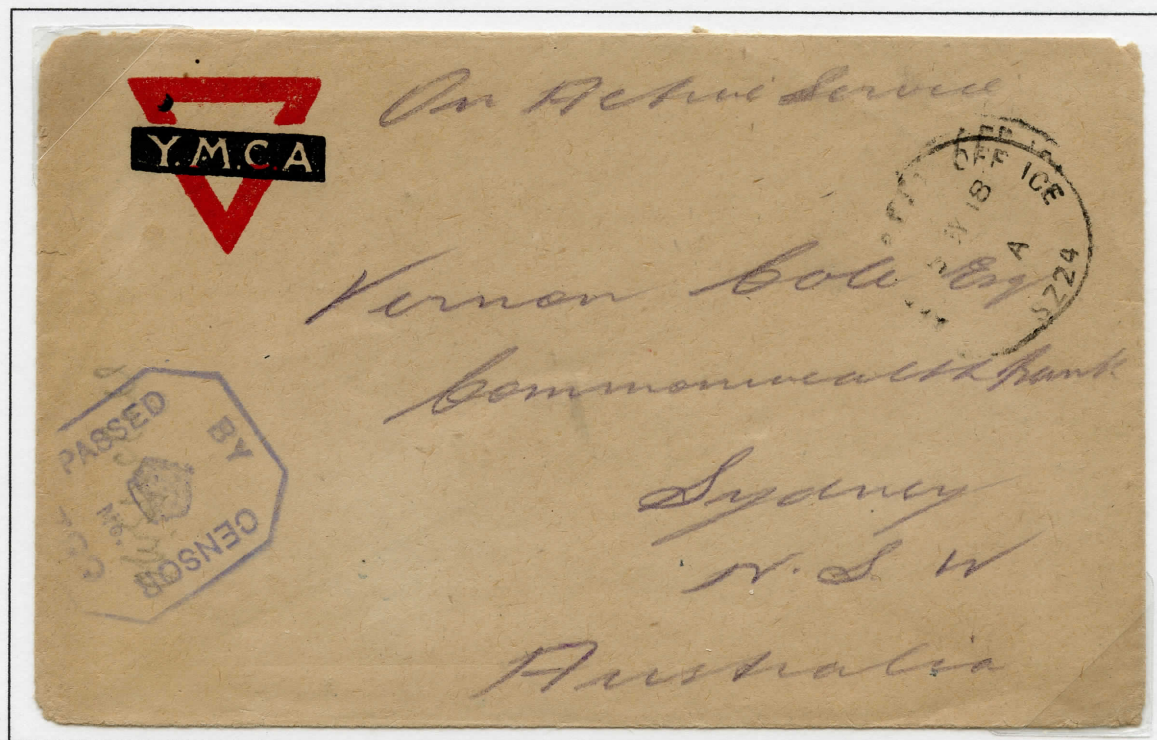 On Active Service
Y.M.C.A
OFFICE
18
A
SZ24
Vernon Cole Esq
Commonwealth Bank
Sydney
N. S W
Australia
PASSED BY
No.
CENSOR